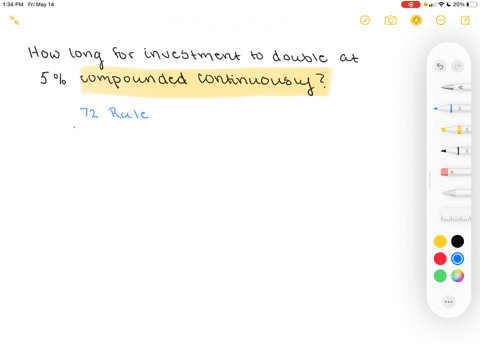 1:34 PM Fri May 14
20%
How long for investment to double at
5% compounded continuously?
72 Rule